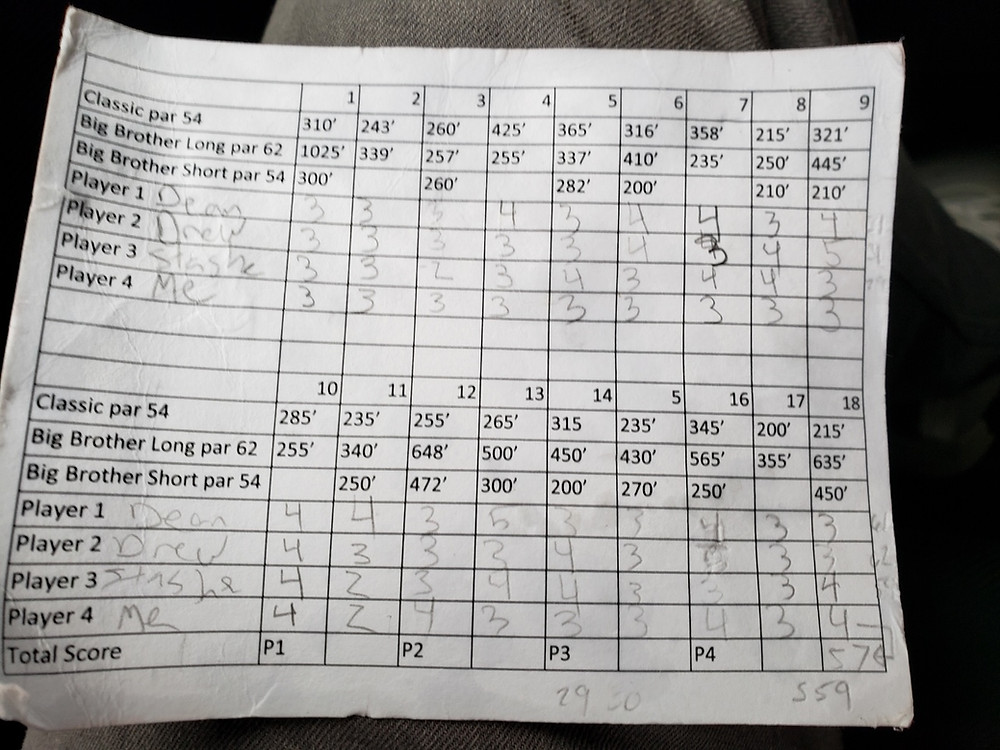 1 2 3 4 5 6 7 8 9
Classic par 54 310' 243' 260' 425' 365' 316' 358' 215' 321'
Big Brother Long par 62 1025' 339' 257' 255' 337' 410' 235' 250' 445'
Big Brother Short par 54 300' 260' 282' 200' 210' 210'
Player 1 Dean 3 3 3 4 3 4 4 3 4
Player 2 Drew 3 3 3 3 3 4 4 5
Player 3 Stashe 3 3 2 3 4 3 4 4 3
Player 4 Me 3 3 3 3 3 3 3 3 3
10 11 12 13 14 5 16 17 18
Classic par 54 285' 235' 255' 265' 315 235' 345' 200' 215'
Big Brother Long par 62 255' 340' 648' 500' 450' 430' 565' 355' 635'
Big Brother Short par 54 250' 472' 300' 200' 270' 250' 450'
Player 1 Dean 4 4 3 5 3 3 4 3 3
Player 2 Drew 4 3 3 3 4 3 3 3
Player 3 Stashe 4 2 3 4 4 3 3 3 4
Player 4 Me 4 2 4 3 3 3 4 3 4
Total Score P1 P2 P3 P4 57
29 559